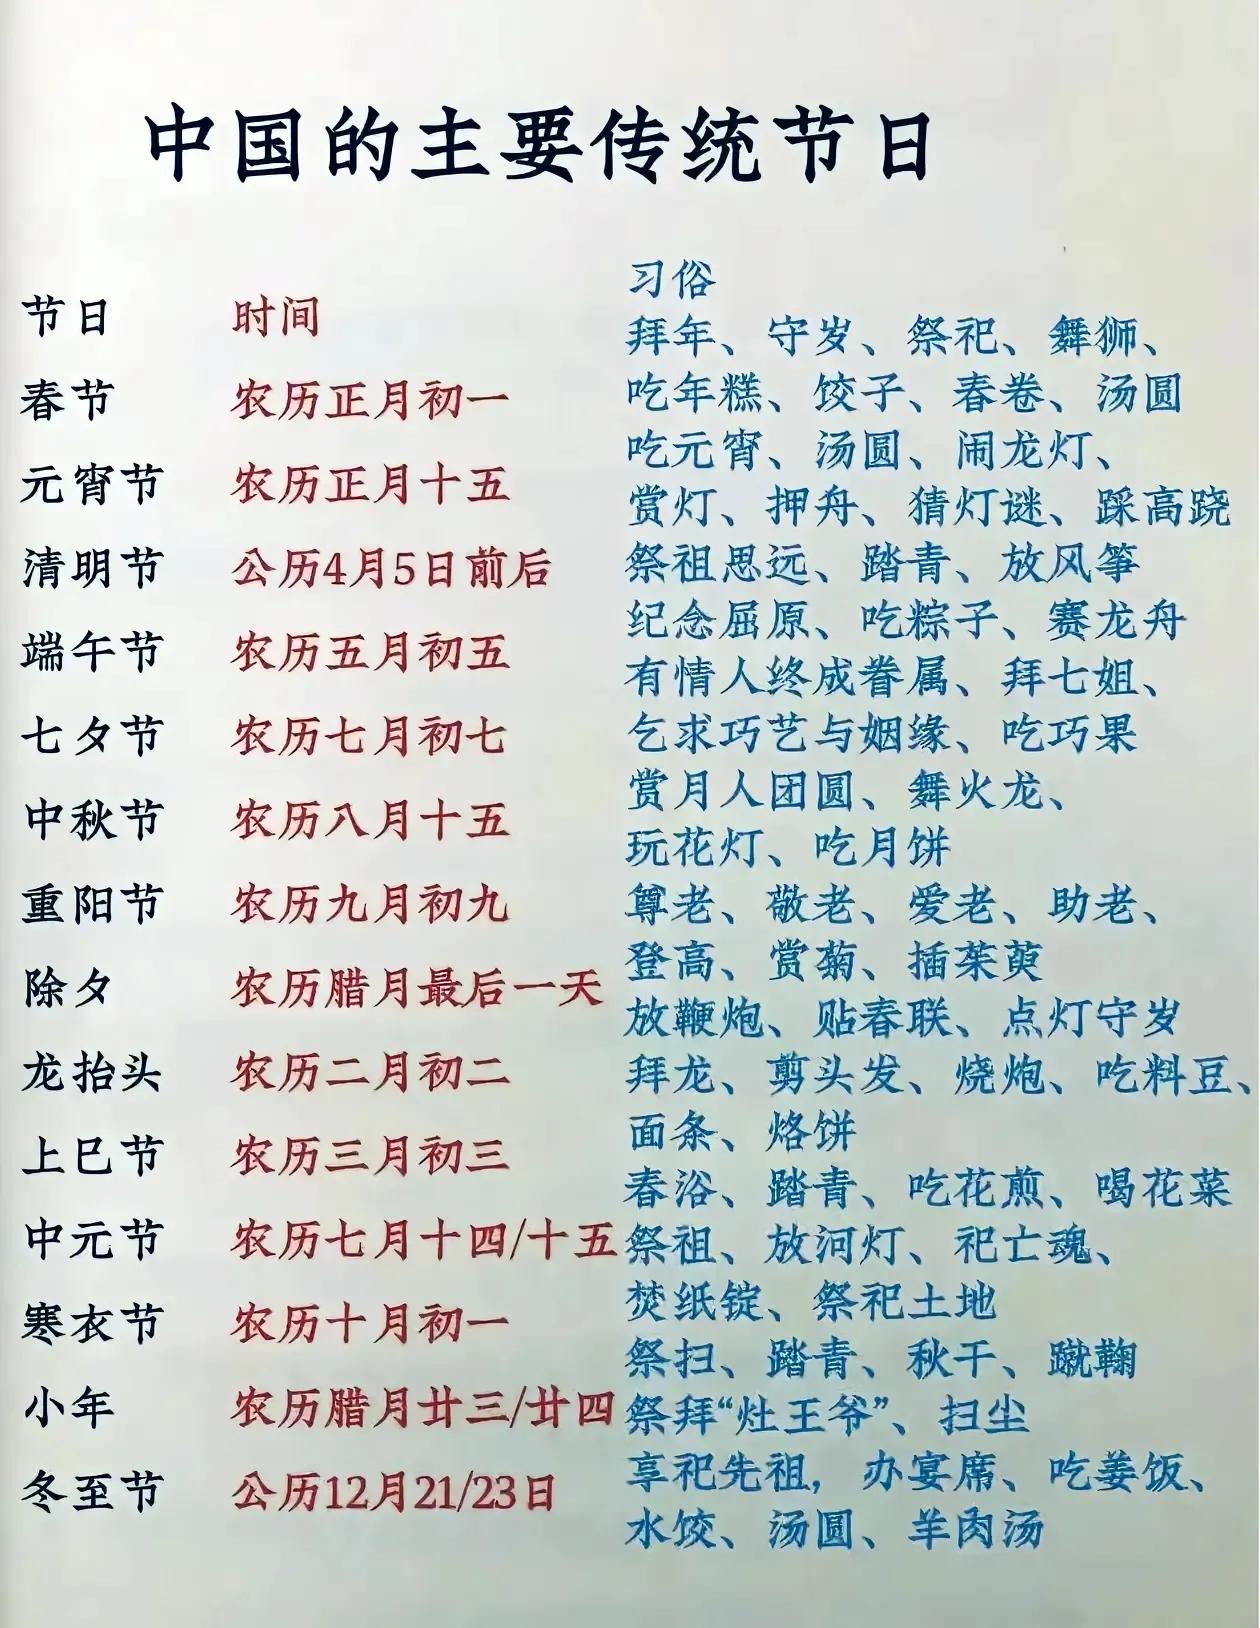 中国的主要传统节日
节日 时间 习俗
拜年、守岁、祭祀、舞狮、
春节 农历正月初一 吃年糕、饺子、春卷、汤圆
吃元宵、汤圆、闹龙灯、
元宵节 农历正月十五 赏灯、押舟、猜灯谜、踩高跷
清明节 公历4月5日前后 祭祖思远、踏青、放风筝
端午节 农历五月初五 纪念屈原、吃粽子、赛龙舟
有情人终成眷属、拜七姐、
七夕节 农历七月初七 乞求巧艺与姻缘、吃巧果
赏月人团圆、舞火龙、
中秋节 农历八月十五 玩花灯、吃月饼
重阳节 农历九月初九 尊老、敬老、爱老、助老、
登高、赏菊、插茱萸
除夕 农历腊月最后一天 放鞭炮、贴春联、点灯守岁
龙抬头 农历二月初二 拜龙、剪头发、烧炮、吃料豆、
面条、烙饼
上巳节 农历三月初三 春浴、踏青、吃花煎、喝花菜
中元节 农历七月十四/十五 祭祖、放河灯、祀亡魂、
焚纸锭、祭祀土地
寒衣节 农历十月初一 祭扫、踏青、秋干、蹴鞠
小年 农历腊月廿三/廿四 祭拜“灶王爷”、扫尘
冬至节 公历12月21/23日 享祀先祖，办宴席、吃姜饭、
水饺、汤圆、羊肉汤